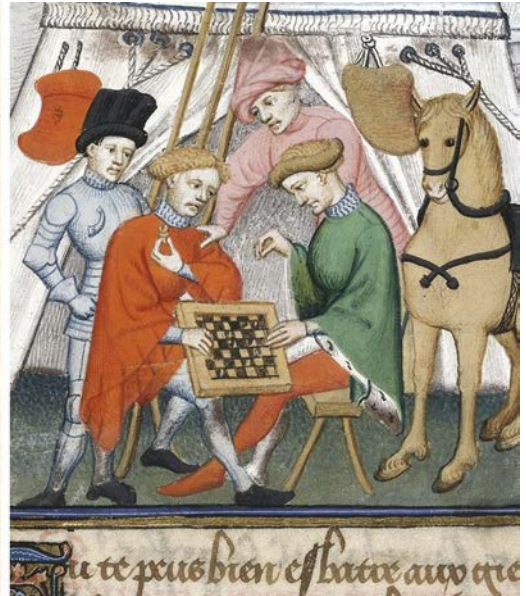 Tu te peus bien esbatre aux gie